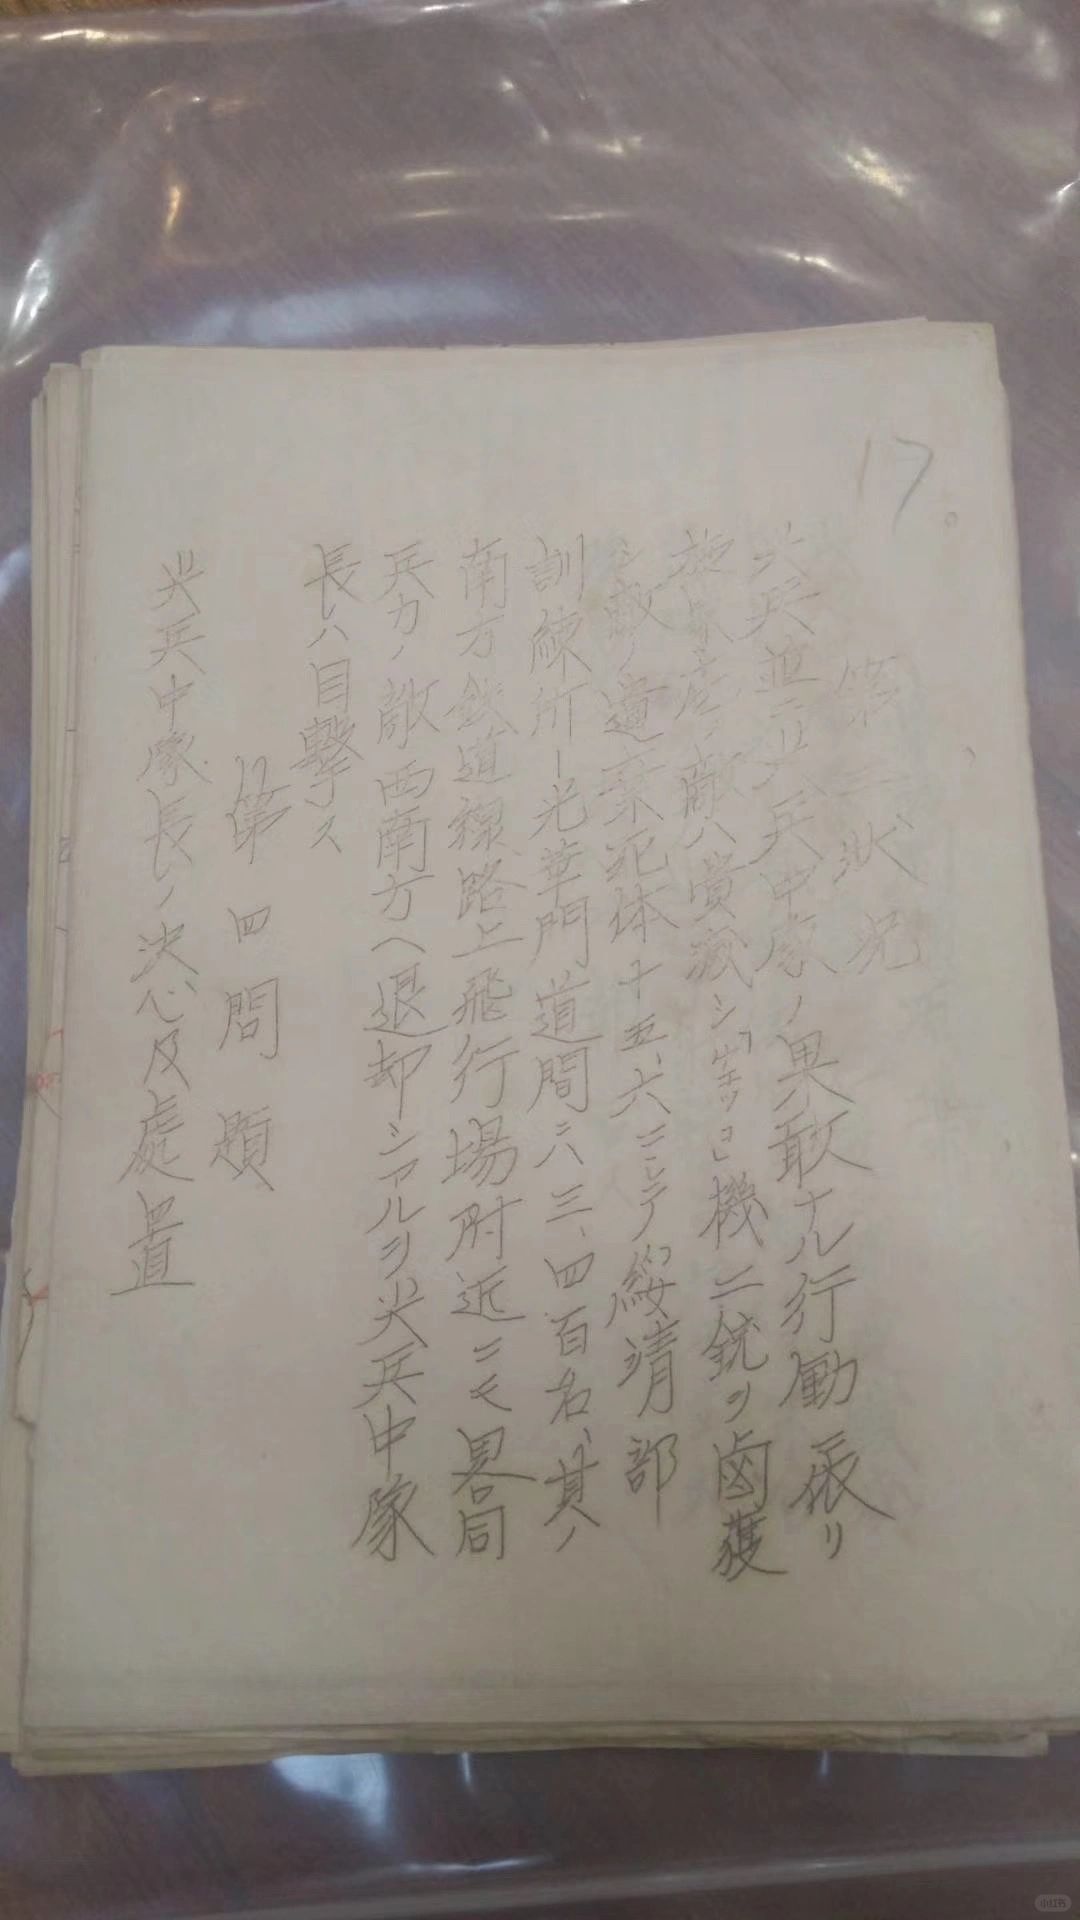 17.
第三状況
尖兵並ニ尖兵中隊ノ果敢ナル行動振リ
敵ハ潰滅シ「チェッコ」機二銃ヲ鹵獲
シ敵ノ遺棄死体十五、六ニシテ綏靖部
訓練所ー光華門道間ニハ三、四百名、其ノ
南方鉄道線路上飛行場附近ニモ畧同
兵力ノ敵西南方ヘ退却シアルヲ尖兵中隊
長ハ目撃ス
第四問題
尖兵中隊長ノ決心及處置
小红书